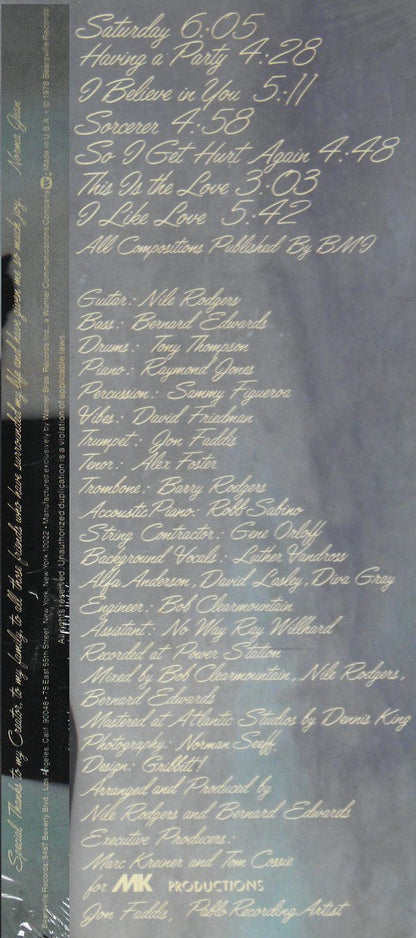 Saturday 6:05
Having a Party 4:28
I Believe in You 5:11
Sorcerer 4:58
So I Get Hurt Again 4:48
This Is the Love 3:03
I Like Love 5:42
All Compositions Published By BMI
Guitar: Nile Rodgers
Bass: Bernard Edwards
Drums: Tony Thompson
Piano: Raymond Jones
Percussion: Sammy Figueroa
Vibes: David Friedman
Trumpet: Jon Faddis
Tenor: Alex Foster
Trombone: Barry Rodgers
Accoustic Piano: Robb Sabino
String Contractor: Gene Orloff
Background Vocals: Luther Vandross
Alfa Anderson, David Lasley, Diva Gray
Engineer: Bob Clearmountain
Assistant: No Way Ray Willhard
Recorded at Power Station
Mixed by Bob Clearmountain, Nile Rodgers,
Bernard Edwards
Mastered at Atlantic Studios by Dennis King
Photography: Norman Seeff,
Design: Gribbitt!
Arranged and Produced by
Nile Rodgers and Bernard Edwards
Executive Producers:
Marc Kreiner and Tom Cossie
for MK PRODUCTIONS
Jon Faddis, Pablo Recording Artist
Special Thanks to my Creator, to my family, to all those friends who have surrounded my life and have given me so much joy. Norma Jean
Bearsville Records, 8467 Beverly Blvd., Los Angeles, Calif. 90048 • 75 East 55th Street, New York, New York 10022 • Manufactured exclusively by Warner Bros. Records Inc., a Warner Communications Company Made in U.S.A. • © 1978 Bearsville Records
All rights reserved. Unauthorized duplication is a violation of applicable laws.